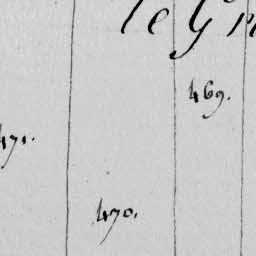 le Gr
469.
471.
470.